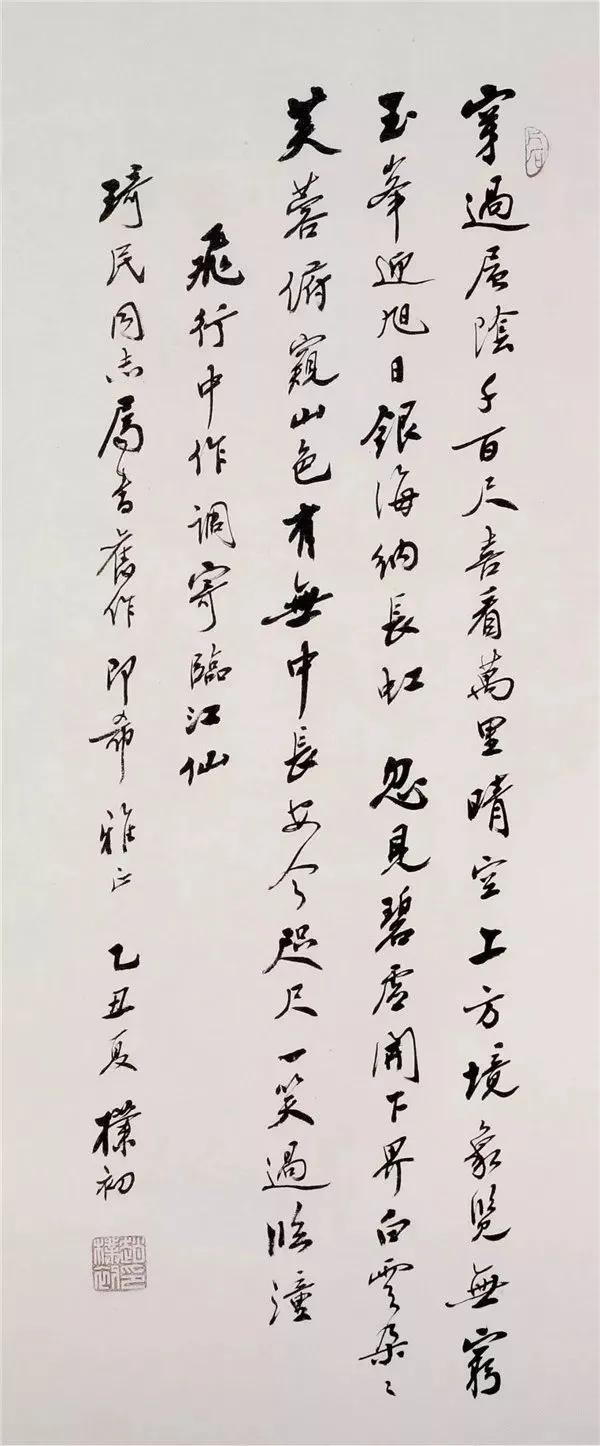 穿過層陰千百尺喜看萬里晴空上方境象覽無窮
玉峯迎旭日銀海納長虹 忽見碧虛開下界白雲朵〻
芙蓉俯窺山色有無中長安今咫尺一笑過臨潼
飛行中作調寄臨江仙
琦民同志屬書舊作即希雅正 乙丑夏 樸初
趙樸初印